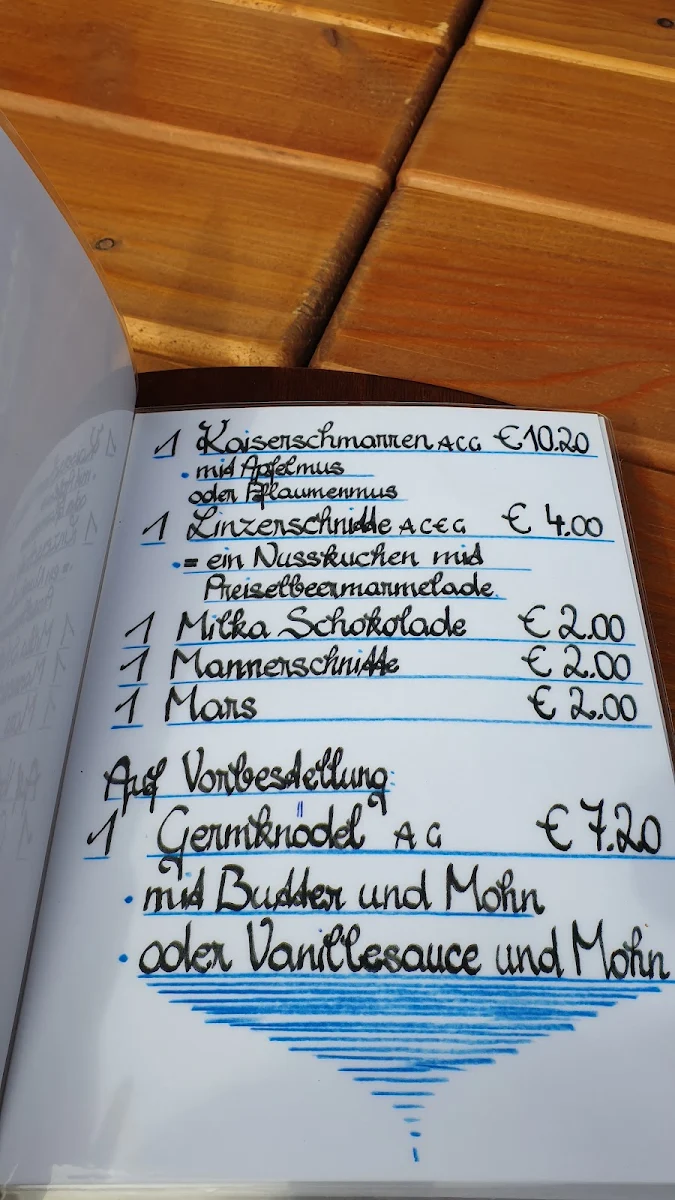 1 Kaiserschmarren ACG €10.20
• mit Apfelmus
oder Pflaumenmus
1 Linzerschnitte ACEG € 4.00
• = ein Nusskuchen mit
Preiselbeermarmelade
1 Milka Schokolade € 2.00
1 Mannerschnitte € 2.00
1 Mars € 2.00
Auf Vorbestellung:
1 Germknödel AG € 7.20
• mit Butter und Mohn
• oder Vanillesauce und Mohn